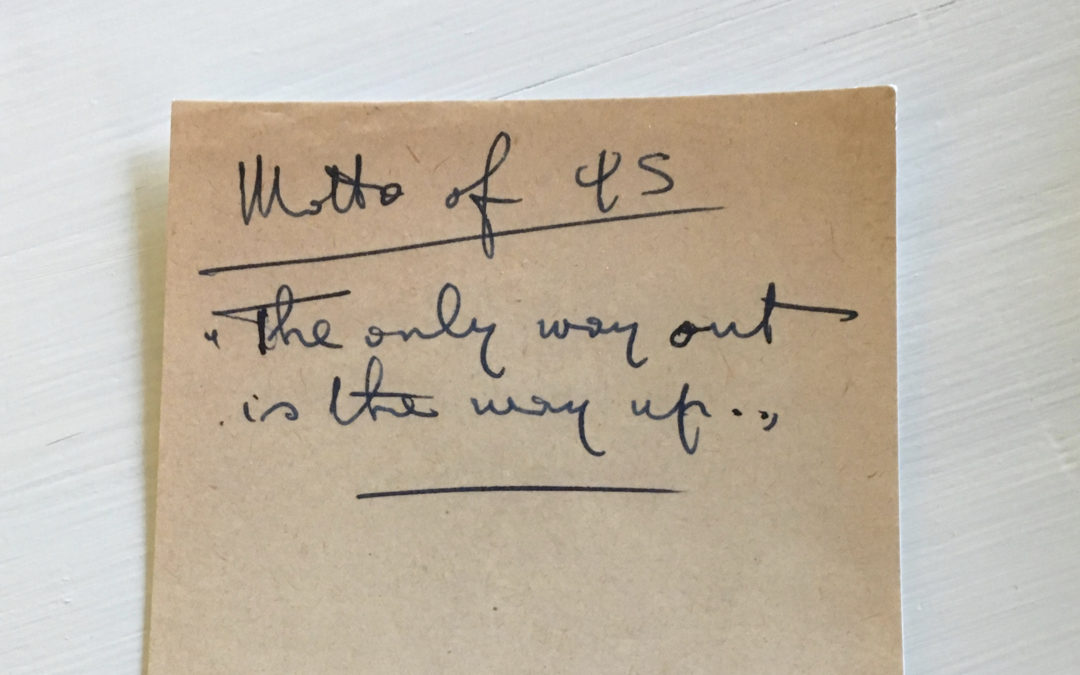 Motto of ΨS
"The only way out
is the way up."